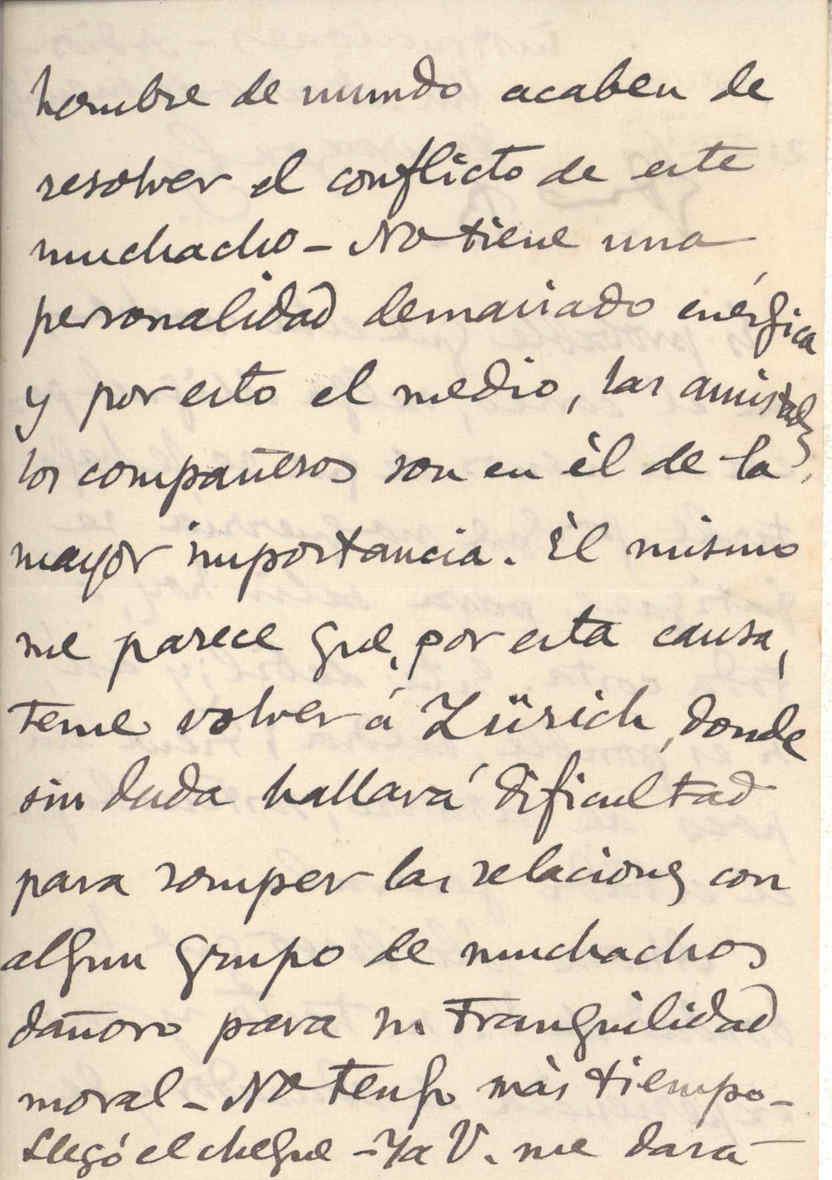 hombre de mundo acaben de
resolver el conflicto de este
muchacho - No tiene una
personalidad demasiado enérgica
y por esto el medio, las amistades,
los compañeros son en él de la
mayor importancia. Él mismo
me parece que, por esta causa,
teme volver á Zürich, donde
sin duda hallará dificultad
para romper las relaciones con
algun grupo de muchachos
dañoso para su tranquilidad
moral - No tengo más tiempo -
Llegó el cheque - Ya V. me dará